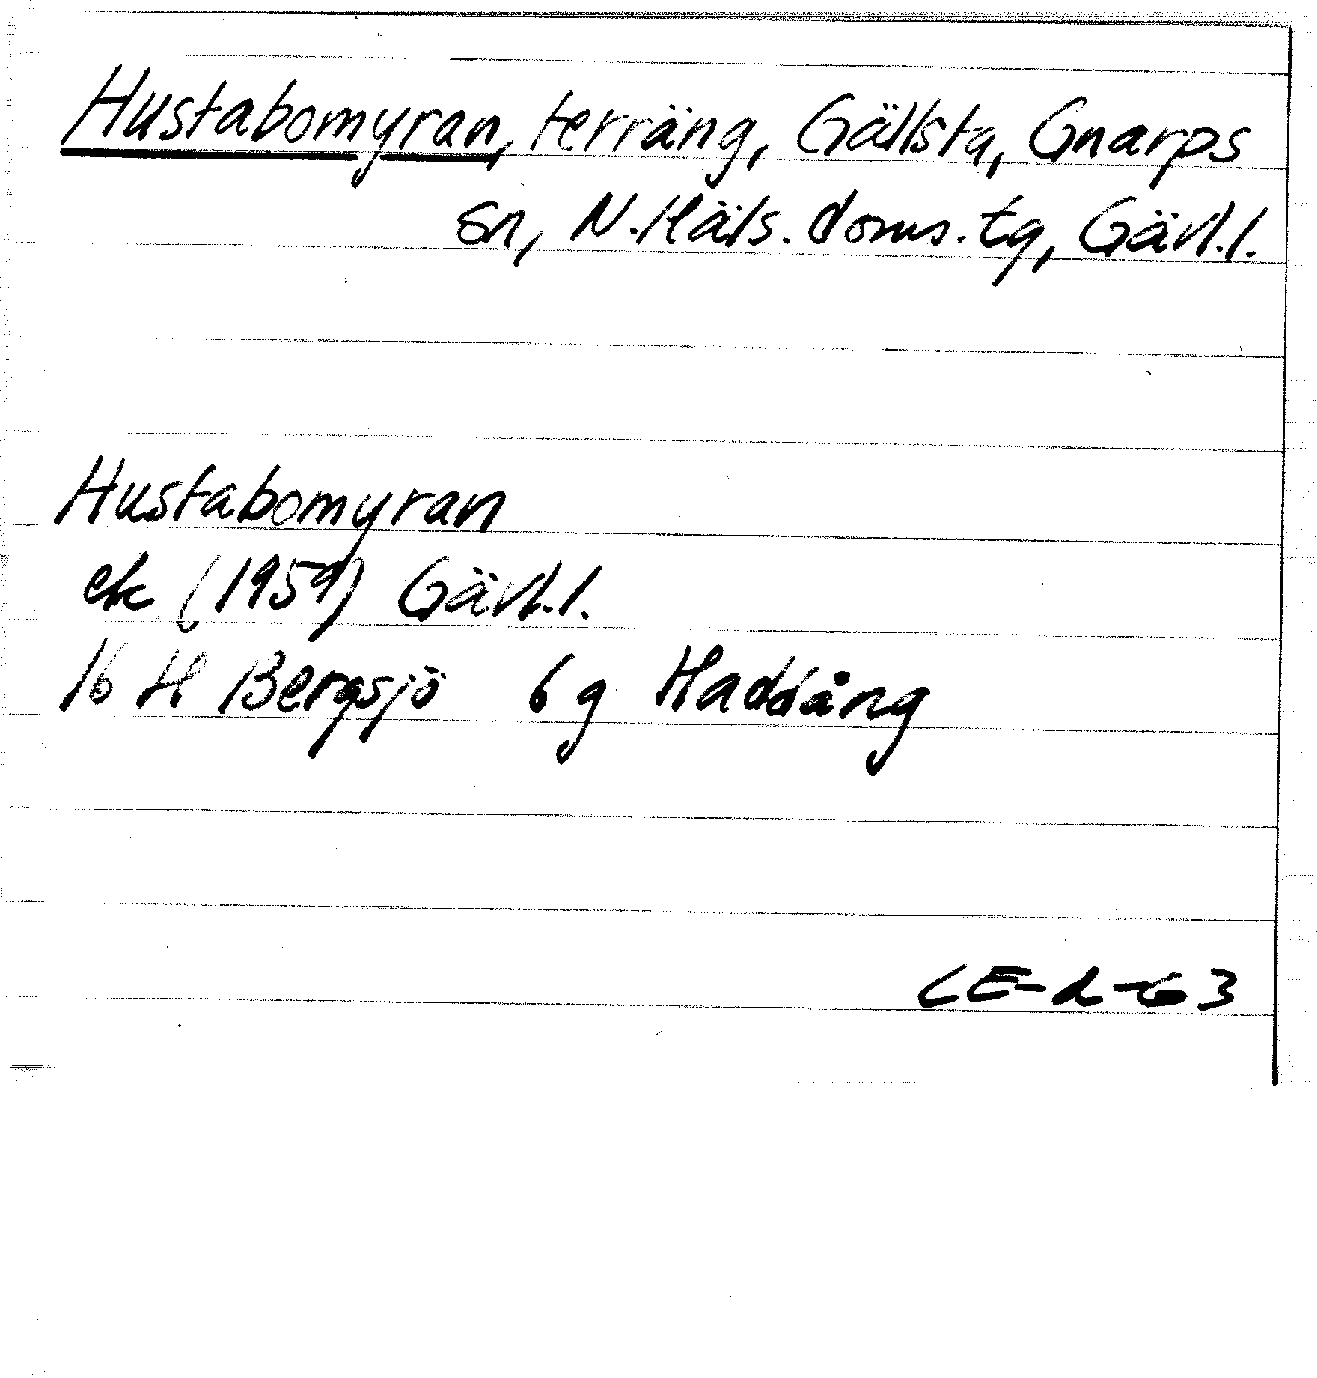 Hustabomyran, terräng, Gällsta, Gnarps
sn, N. Häls. doms. tg, Gävl.l.
Hustabomyran
ek (1959) Gävl.l.
16 H Bergsjö 6 g Haddång
LE-d-63